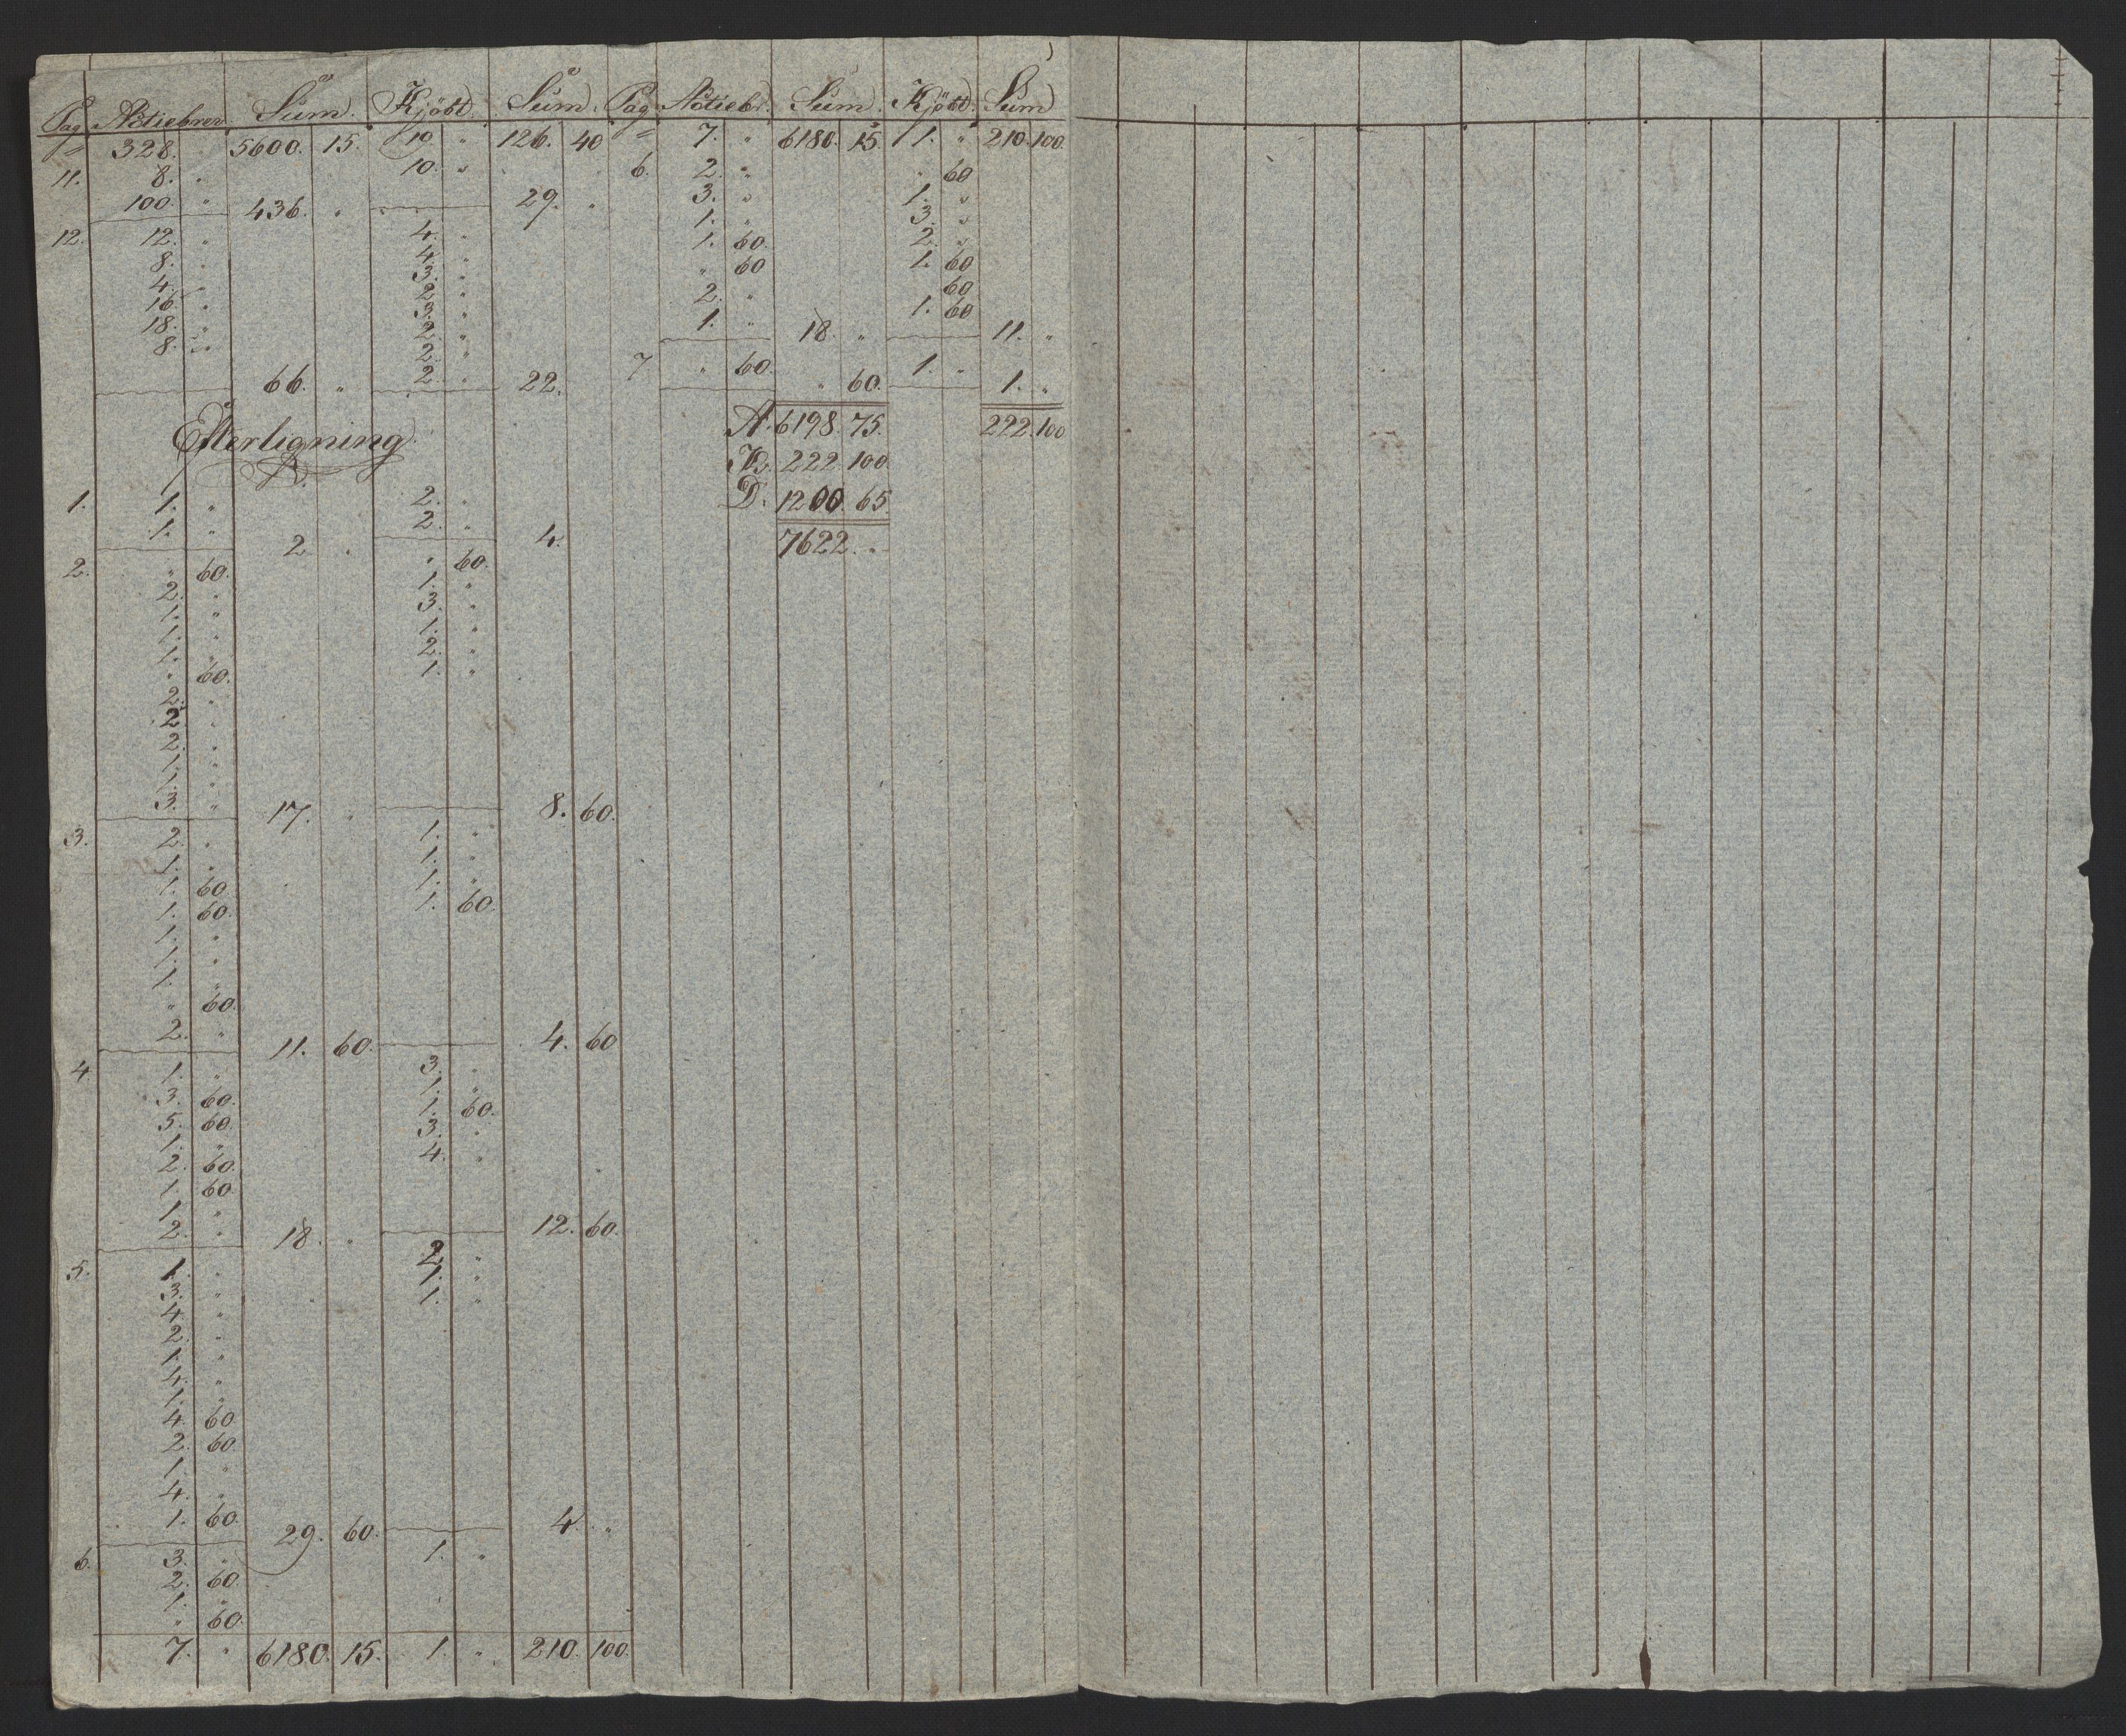 Pag Actiebrev Sum Kjöbt Sum
" 328. " 5600. 15. 10 " 126. 40
11. 8. " 10. "
100. " 436. " 29. "
12. 12. " 4. "
8. " 4. "
4. " 3. "
16. " 2. "
18. " 3. "
8. " 2. "
2. "
66. " 2. " 22.
Efterligning
1. 1. " 2. "
1. " 2. "
2 " 4.
2. " 60. " 60.
2. " 1. "
1. " 3. "
1. " 1. "
1. " 2. "
" 60. 1. "
2. "
2. "
2. "
1. "
1. "
3. " 17. " 8. 60.
3. 2. " 1. "
1. " 1. "
1. 60. 1. "
1. 60. 1. 60.
1. "
1. "
1. "
" 60.
2. " 11. 60. 4. 60
4. 1. " 3. "
3. 60. 1. "
5. 60. 1. 60.
1. " 3. "
2. 60. 4. "
1. 60
1. "
2. " 18. " 12. 60.
5. 1. " 2. "
3. " 1. "
4. " 1. "
2. "
1. "
4. "
1. "
4. 60
2. 60.
1. "
4. "
1. 60. 29. 60. 4. "
6. 3. " 1. "
2. 60.
1. "
" 60.
7. " 6180. 15. 1. " 210. 100.
Pag Actiebr. Sum Kjöbt Sum
" 7. " 6180. 15 1. " 210. 100.
6. 2. " " 60
3. " 1. "
1. " 3. "
1. 60. 2. "
" 60 1. 60
2. " 60
1. " 1. 60
18. " 11. "
7 " 60. 1. "
" 60. 1. "
A. 6198. 75. 222. 100
K. 222. 100
D. 1200. 65
7622. "